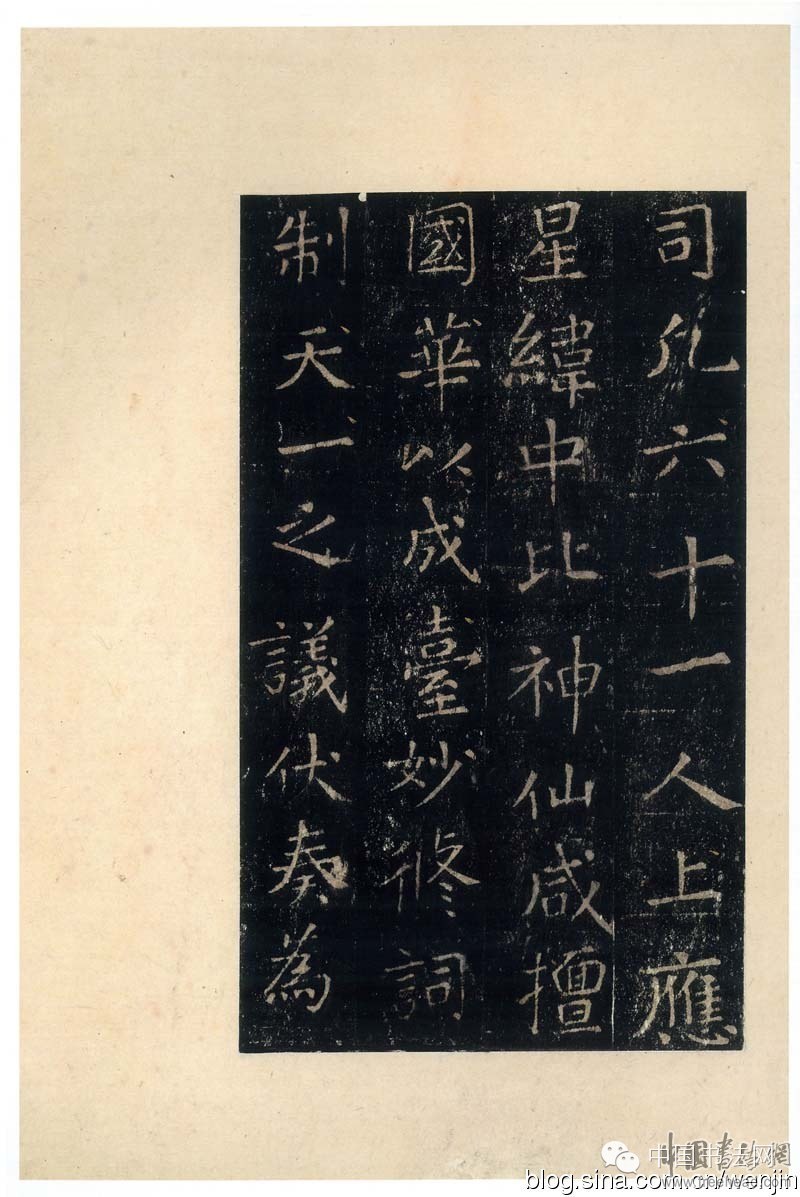 司凡六十一人上應
星緯中比神仙咸擅
國華以成臺妙修詞
制天一之議伏奏為
中国书法网
中国书法网
blog.sina.com.cn/wenjin